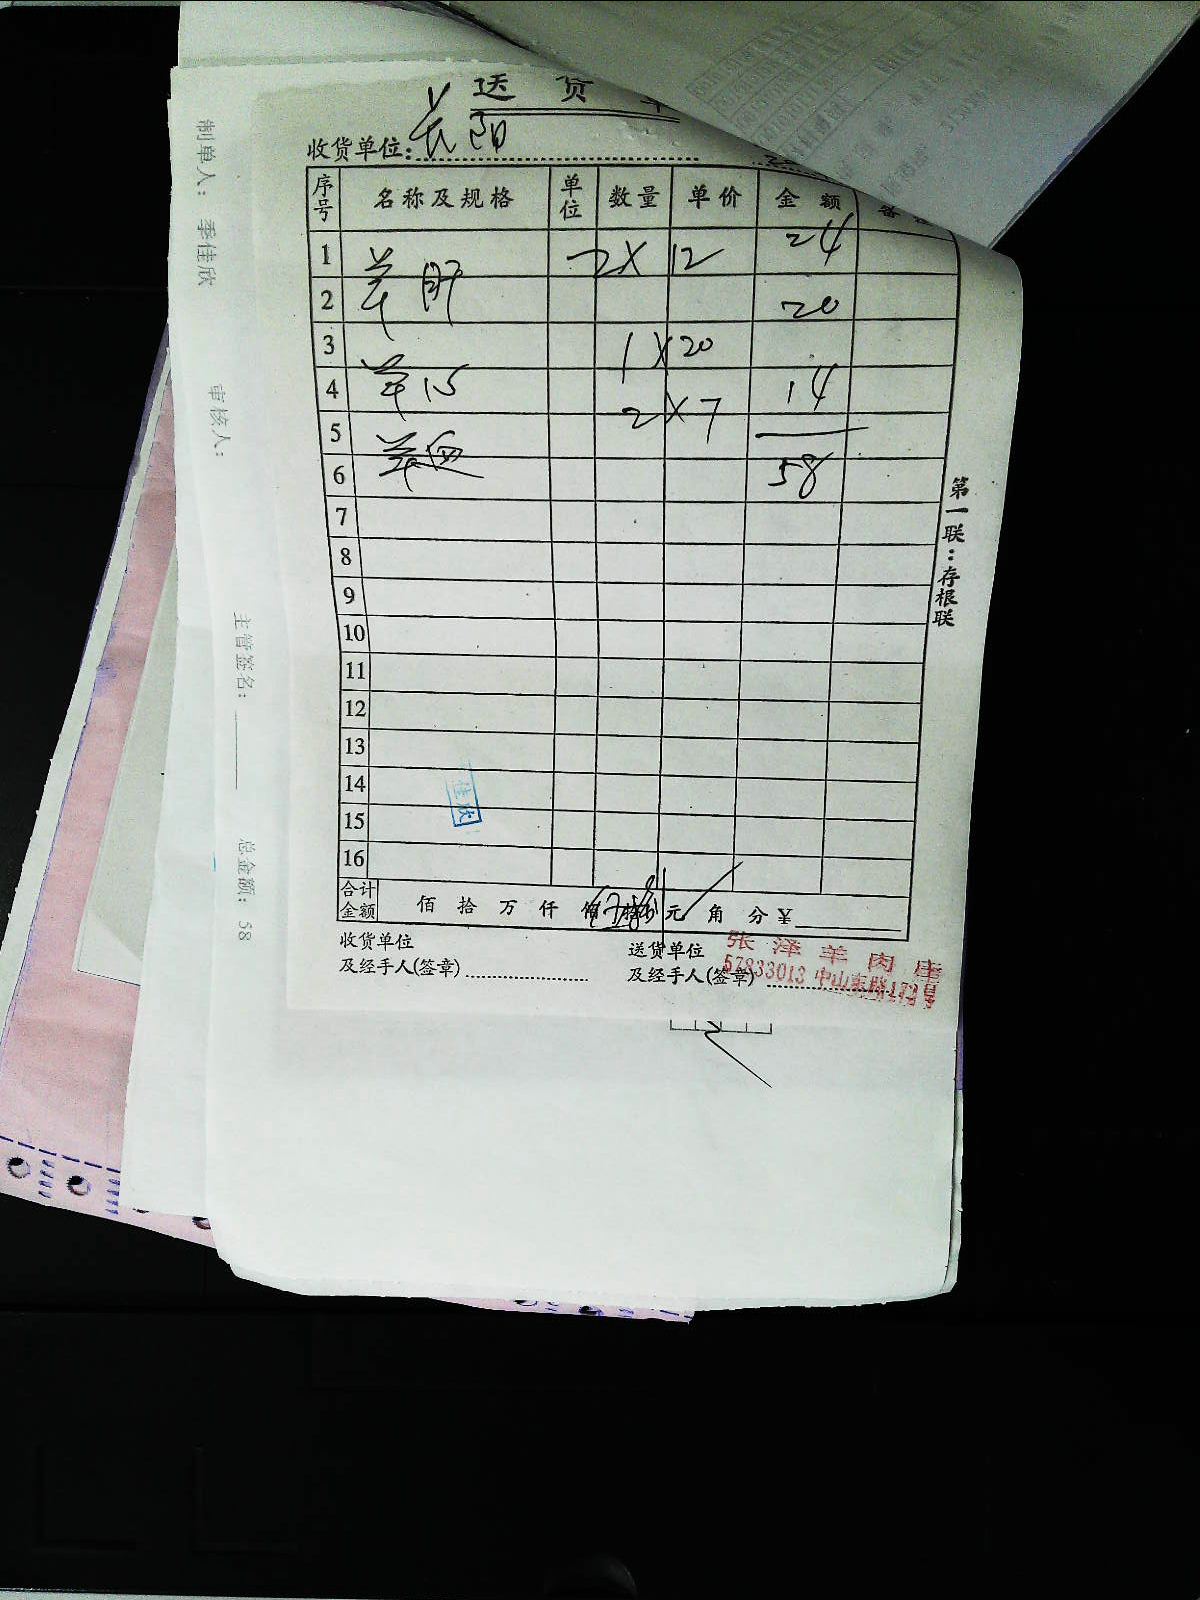 送 货
收货单位: 长阳
序号 名称及规格 单位 数量 单价 金额
1 羊肝 2 X 12 24
2 20
3 1 X 20
4 羊心 2 X 7 14
5 羊血
6 58
7
8
9
10
11
12
13
14
15
16
合计金额 佰 拾 万 仟 元 角 分 ¥
收货单位 及经手人(签章)
送货单位 及经手人(签章)
张泽羊肉庄
57833013 中山东路
第一联:存根联
佳欣
制单人: 季佳欣
审核人:
主管签名:
总金额: 58